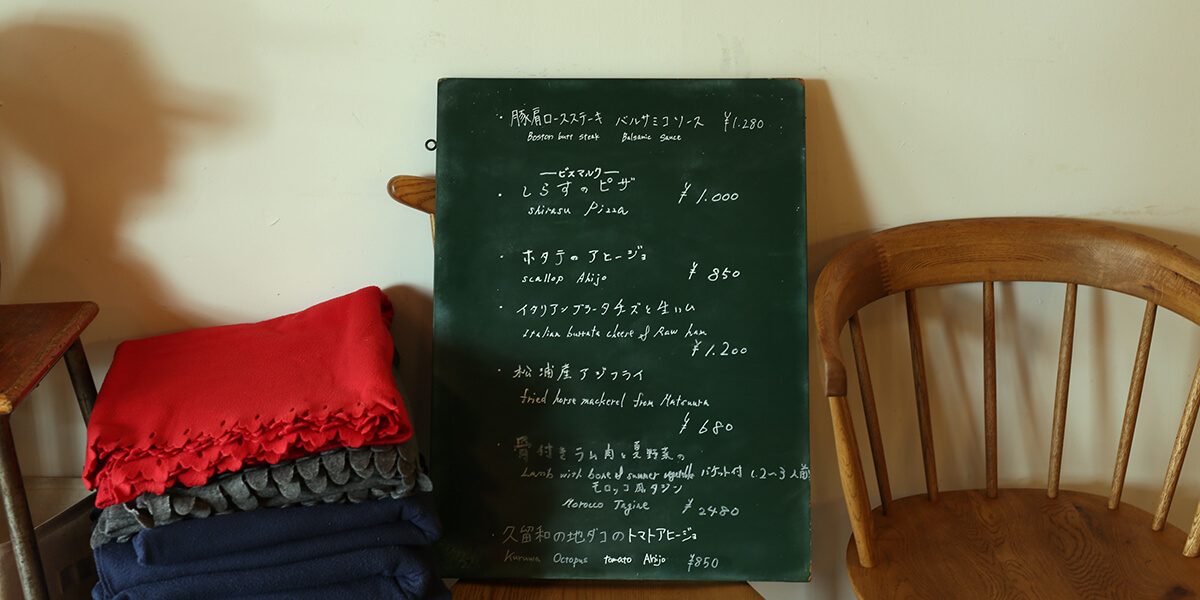 ・豚肩ロースステーキ バルサミコソース ¥1.280
Boston butt steak Balsamic sauce
ービスマルクー
・しらすのピザ ¥1.000
shirasu Pizza
・ホタテのアヒージョ
scallop Ahijo ¥850
・イタリアンブラータチーズと生ハム
Italian burrata cheese & Raw ham
¥1.200
・松浦産アジフライ
fried horse mackerel from Matsuura
¥680
・骨付きラム肉と夏野菜の
Lamb with bone & summer vegetable バゲット付 (2〜3人前)
モロッコ風タジン
Morocco Tagine ¥2480
・久留和の地ダコのトマトアヒージョ
Kuruwa Octopus tomato Ahijo ¥850